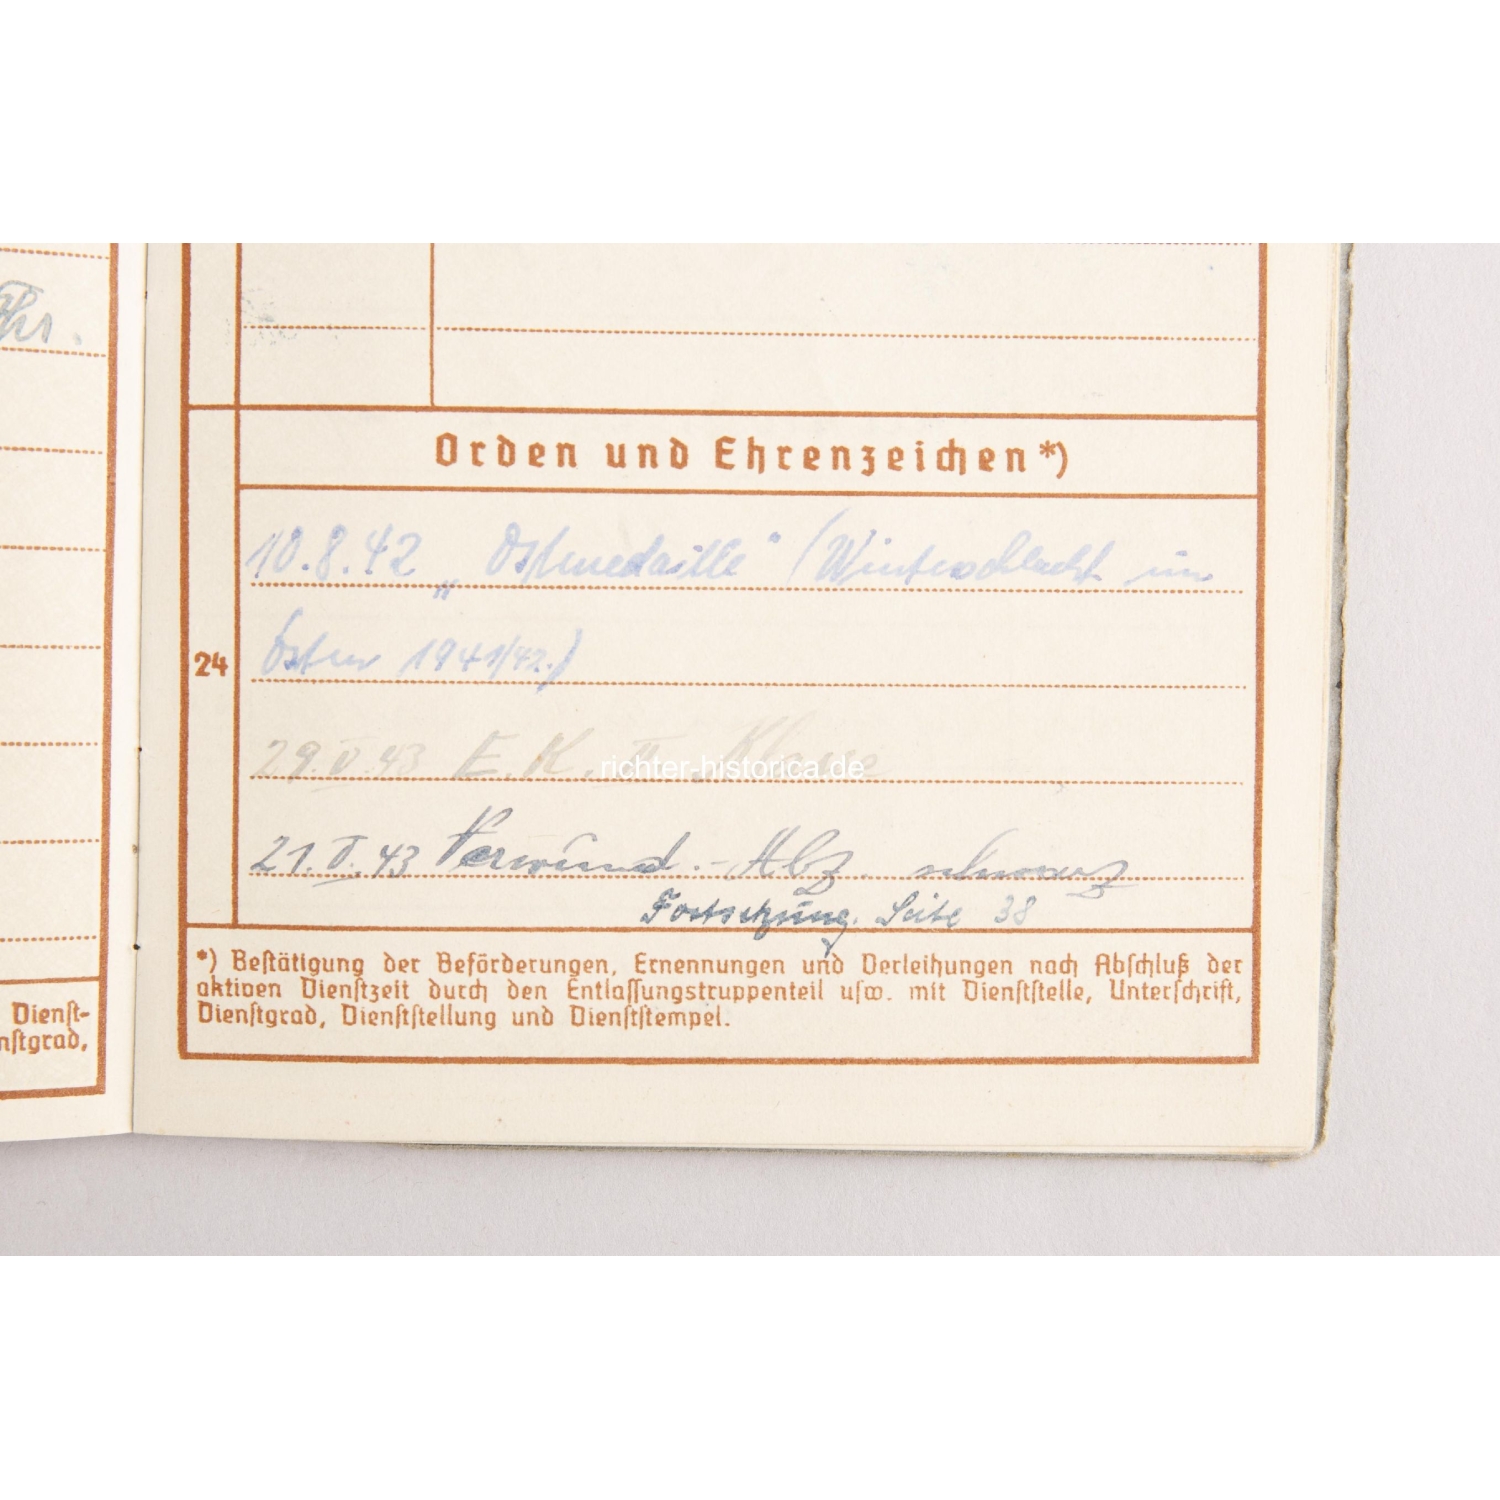 Thr.
Dienst-
nstgrad,
Orden und Ehrenzeichen *)
10.8.42 „Ostmedaille" (Winterschlacht im
24
Osten 1941/42.)
29. V. 43 E. K. II. Klasse
richter-historica.de
21. V. 43 Verwund.-Abz. schwarz
Fortsetzung. Seite 38
*) Bestätigung der Beförderungen, Ernennungen und Verleihungen nach Abschluß der
aktiven Dienstzeit durch den Entlassungstruppenteil usw. mit Dienststelle, Unterschrift,
Dienstgrad, Dienststellung und Dienststempel.